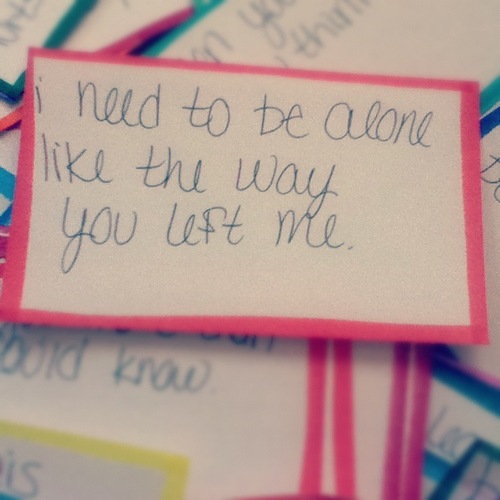 i need to be alone
like the way
you left me.
know
is